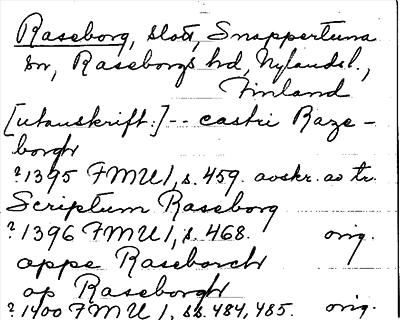 Raseborg, slott, Snappertuna
sn, Raseborgs hd, Nylands l.,
Finland
[utanskrift:] -- castri Raze-
borgh
?1395 FMU I, s. 459. avskr. av tr.
Scriptum Raseborg
?1396 FMU I, s. 468. orig.
oppe Raseborch
op Raseborgh
?1400 FMU I, ss. 484, 485. orig.